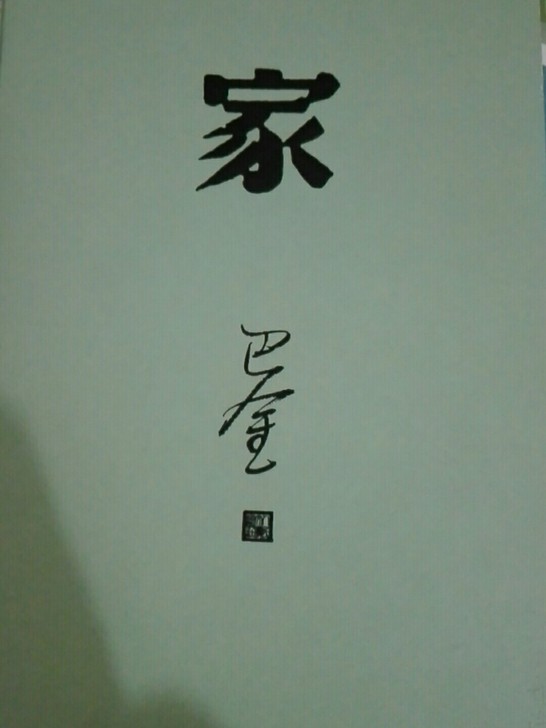 家
巴金